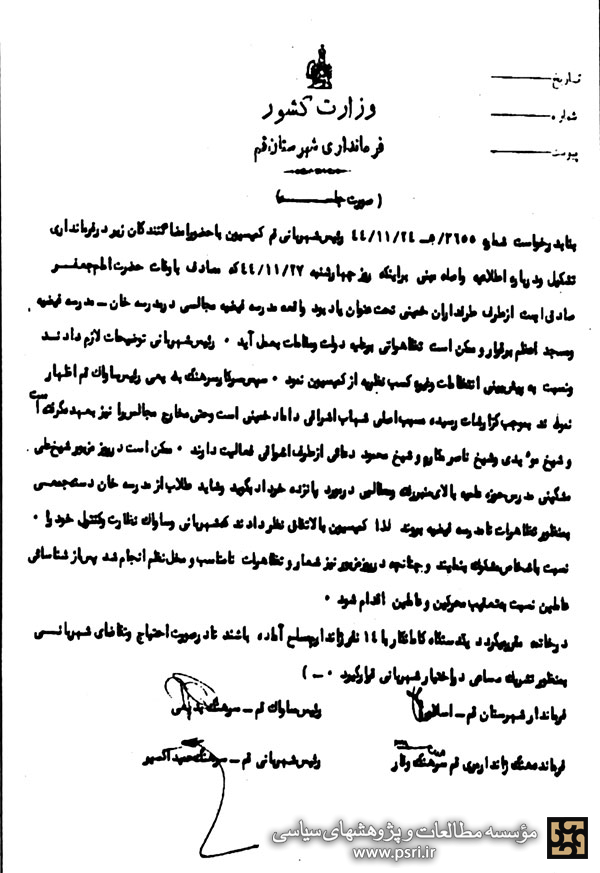 تاریخ
شماره
پیوست
وزارت کشور
فرمانداری شهرستان قم
(صورت جلسه)
بنابدرخواست شماره ۳۶۵۵/ ۴۴/۱۱/۲۴ رئیس شهربانی قم کمیسیون با حضور امضا کنندگان زیر در فرمانداری
تشکیل ودرباره اطلاعیه واصله مبنی براینکه روز چهارشنبه ۴۴/۱۱/۲۷ که مصادف با وفات حضرت امام جعفر
صادق است ازطرف طرفداران خمینی تحت عنوان یاد بود واقعه مدرسه فیضیه مجالسی درمدرسه خان ــ مدرسه فیضیه
ومسجد اعظم برقرار و ممکن است تظاهراتی برعلیه دولت ومقامات بعمل آید ۰ رئیس شهربانی توضیحات لازم دادند
ونسبت به پیش بینی انتظامات وغیره کسب نظریه از کمیسیون نمود ۰ سپس سرکار سرهنگ بدیعی رئیس ساواک قم اظهار
نمودند بموجب گزارشات رسیده مسبب اصلی شهاب اشراقی داماد خمینی است وحتی مخارج مجالس را نیز بعهده گرفته است
و شیخ مویدی وشیخ ناصر مکارم و شیخ محمود دعائی ازطرف اشراقی فعالیت دارند ۰ ممکن است در روز مزبور شیخ علی
مشگینی مدرس حوزه علمیه بالای منبر رفته ومطالبی درمورد پانزده خرداد بگوید وشاید طلاب از مدرسه خان دستجمعی
بمنظور تظاهرات تا مدرسه فیضیه بروند لذا کمیسیون بالاتفاق نظر دادند که شهربانی وساواک نظارت وکنترل خود را
نسبت باشخاص مشکوک بنمایند و چنانچه در روز مزبور نیز شعار و تظاهرات نامناسب و مخل نظم انجام شد پس از شناسائی
عاملین نسبت به تعقیب محرکین و عاملین اقدام شود ۰
درخاتمه مقرر گردید یکدستگاه کامانکار با ۱۴ نفر ژاندارم مسلح آماده باشند تا درصورت احتیاج وتقاضای شهربانی
بمنظور تشریک مساعی در اختیار شهربانی قرار گیرد ۰ ــ )
فرماندار شهرستان قم ــ
رئیس ساواک قم ــ سرهنگ بدیعی
فرمانده هنگ ژاندارمری قم سرهنگ وقار
رئیس شهربانی قم ــ سرهنگ
مؤسسه مطالعات و پژوهشهای سیاسی
www.psri.ir